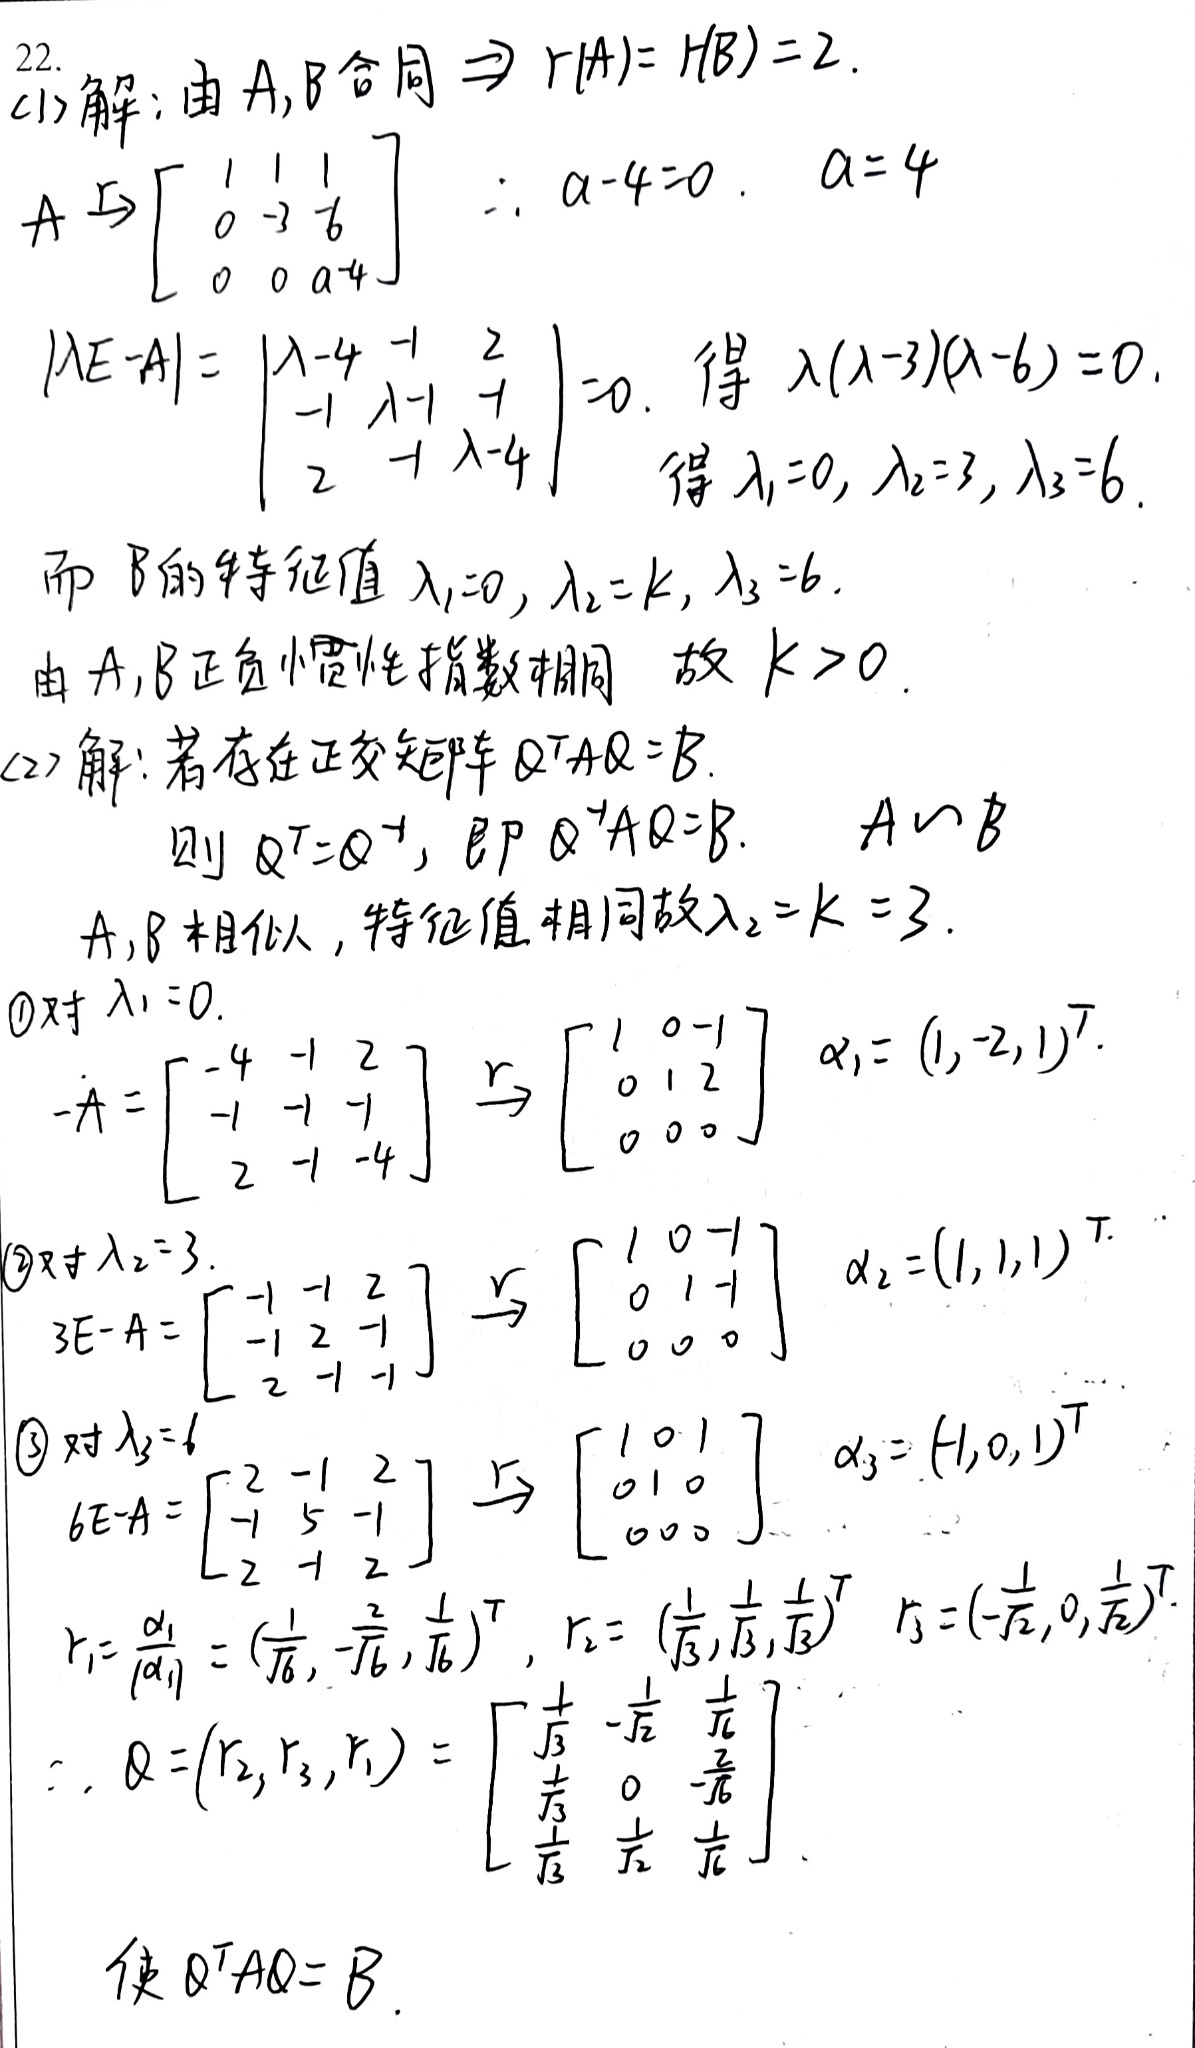 22.
(1) 解: 由 A,B 合同 ⇒ r(A) = r(B) = 2.
A r→ [ 1 1 1 ; 0 -3 -6 ; 0 0 a-4 ] ∴ a-4=0. a=4
|λE-A| = | λ-4 -1 2 ; -1 λ-1 -1 ; 2 -1 λ-4 | =0. 得 λ(λ-3)(λ-6)=0.
得 λ₁=0, λ₂=3, λ₃=6.
而 B的特征值 λ₁=0, λ₂=k, λ₃=6.
由 A,B正负惯性指数相同 故 k>0.
(2) 解: 若存在正交矩阵 QᵀAQ=B.
则 Qᵀ=Q⁻¹, 即 Q⁻¹AQ=B. A∽B
A,B相似, 特征值相同故λ₂=k=3.
①对 λ₁=0.
-A = [ -4 -1 2 ; -1 -1 -1 ; 2 -1 -4 ] r→ [ 1 0 -1 ; 0 1 2 ; 0 0 0 ] α₁= (1,-2,1)ᵀ.
②对 λ₂=3.
3E-A = [ -1 -1 2 ; -1 2 -1 ; 2 -1 -1 ] r→ [ 1 0 -1 ; 0 1 -1 ; 0 0 0 ] α₂=(1,1,1)ᵀ.
③对 λ₃=6
6E-A = [ 2 -1 2 ; -1 5 -1 ; 2 -1 2 ] r→ [ 1 0 1 ; 0 1 0 ; 0 0 0 ] α₃= (-1,0,1)ᵀ
r₁= α₁/|α₁| = (1/√6, -2/√6, 1/√6)ᵀ, r₂= (1/√3, 1/√3, 1/√3)ᵀ r₃=(-1/√2, 0, 1/√2)ᵀ.
∴ Q=(r₂, r₃, r₁) = [ 1/√3 -1/√2 1/√6 ; 1/√3 0 -2/√6 ; 1/√3 1/√2 1/√6 ].
使 QᵀAQ= B.